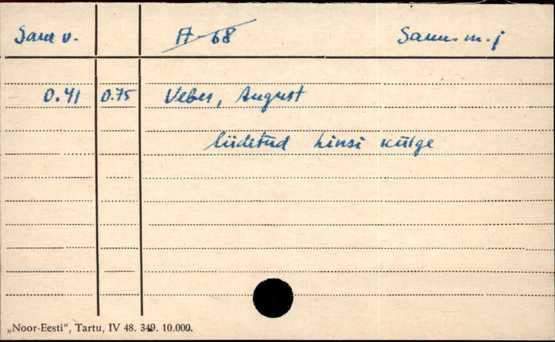 Saru v. A-68 Saru. m. j
0.41 0.75 Veber, August
liidetud Hinsi külge
„Noor-Eesti“, Tartu, IV 48. 349. 10.000.